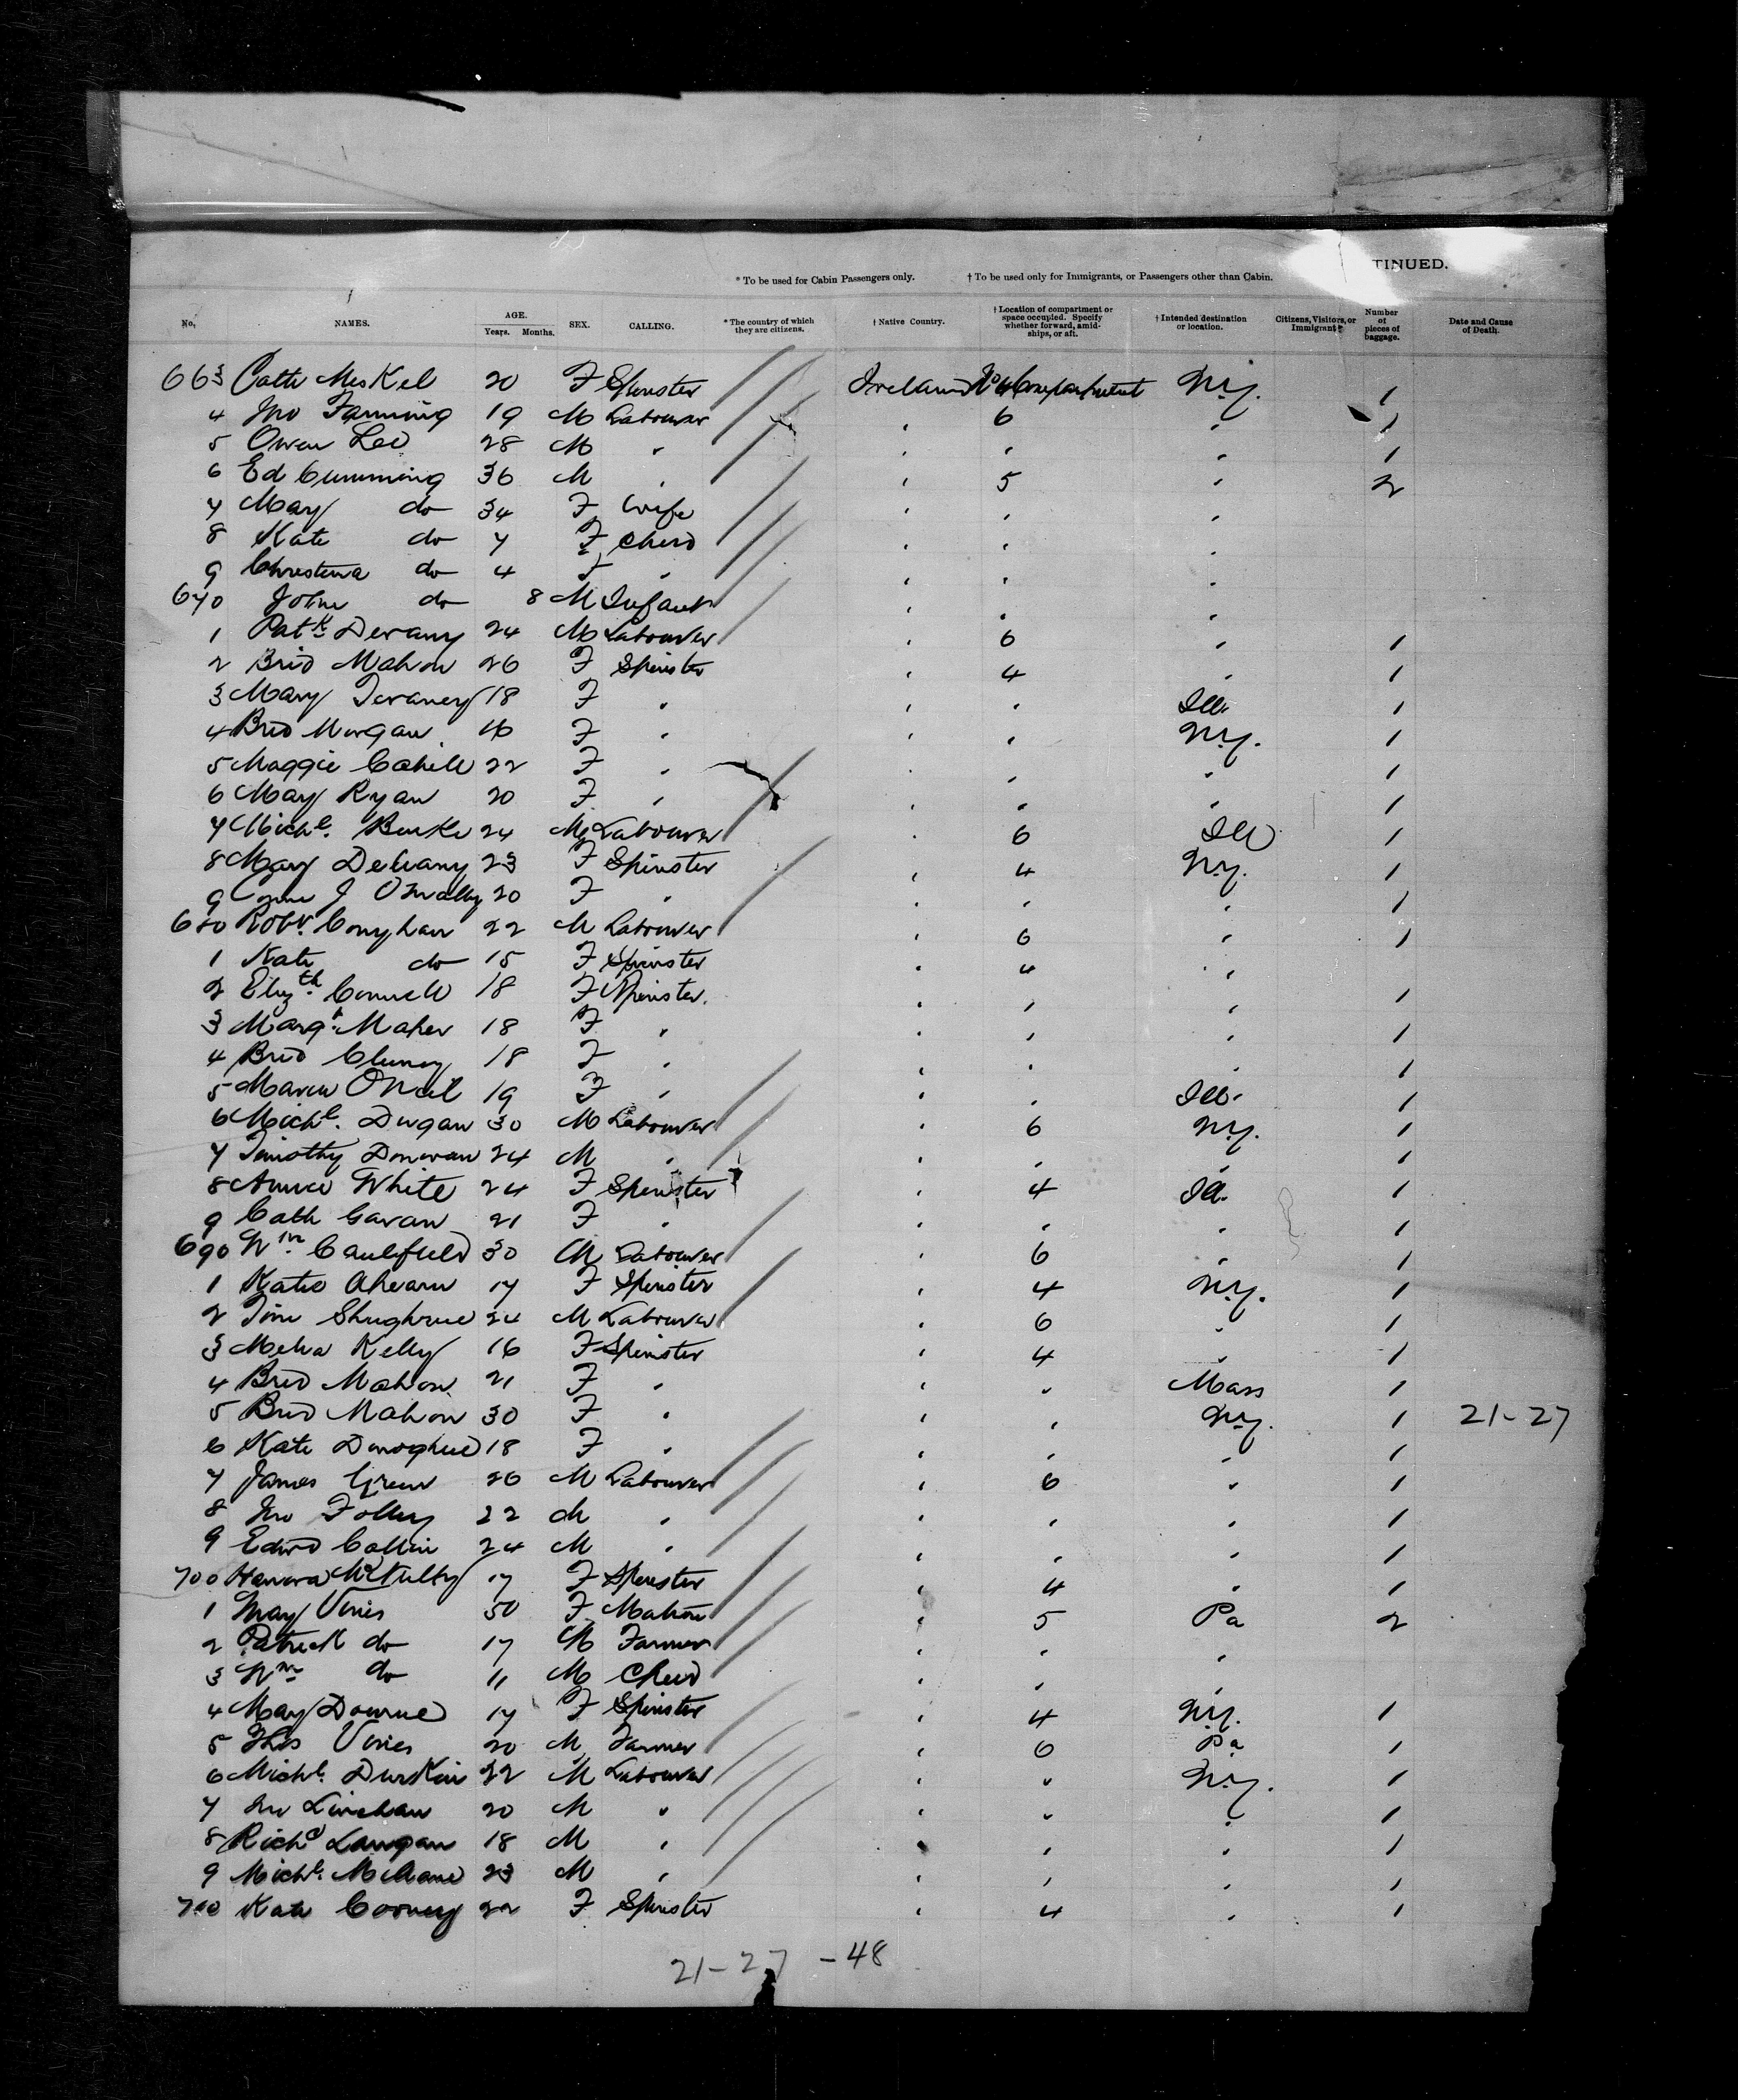 TINUED.
* To be used for Cabin Passengers only. † To be used only for Immigrants, or Passengers other than Cabin.
No. NAMES. AGE. Years. Months. SEX. CALLING. * The country of which they are citizens. † Native Country. † Location of compartment or space occupied. Specify whether forward, amidships, or aft. † Intended destination or location. Citizens, Visitors, or Immigrants Number of pieces of baggage. Date and Cause of Death.
663 Cath Meskel 20 F Spinster Ireland No 4 Compartment N.Y. 1
4 Jno Fanning 19 M Labourer " 6 " 1
5 Owen Lee 28 M " " " " 1
6 Ed Cumming 36 M " " 5 " 2
7 Mary do 34 F Wife " " "
8 Kate do 7 F Child " " "
9 Christina do 4 F " " " "
670 John do 8 M Infant " " "
1 Patk Devany 24 M Labourer " 6 " 1
2 Brid Mahon 26 F Spinster " 4 " 1
3 Mary 18 F " " " Ill. 1
4 Brid Morgan 16 F " " " N.Y. 1
5 Maggie Cahill 22 F " " " " 1
6 May Ryan 20 F " " " " 1
7 Michl. Burke 24 M Labourer " 6 Ill 1
8 Mary Delvany 23 F Spinster " 4 N.Y. 1
9 J OMalley 20 F " " " " 1
680 Robt. 22 M Labourer " 6 " 1
1 Kate do 15 F Spinster " 4 "
2 Elizth. Connell 18 F Spinster. " " " 1
3 Margt. Maher 18 F " " " " 1
4 Brid Cluney 18 F " " " " 1
5 Maria ONeil 19 F " " " Ill. 1
6 Michl. Dugan 30 M Labourer " 6 N.Y. 1
7 Timothy Donovan 24 M " " " " 1
8 Annie White 24 F Spinster " 4 Ill. 1
9 Cath Gavan 21 F " " " " 1
690 Wm. Caulfield 30 M Labourer " 6 " 1
1 Katie Ahearn 17 F Spinster " 4 N.Y. 1
2 Tim Shughrue 24 M Labourer " 6 " 1
3 Melia Kelly 16 F Spinster " 4 " 1
4 Brid Mahon 21 F " " " Mass 1
5 Brid Mahon 30 F " " " N.Y. 1 21-27
6 Kate Donoghue 18 F " " " " 1
7 James Green 26 M Labourer " 6 " 1
8 Jno Folley 22 M " " " " 1
9 Edwd Collin 24 M " " " " 1
700 Hanora McNulty 17 F Spinster " 4 " 1
1 May Vines 50 F Matron " 5 Pa 2
2 Patrick do 17 M Farmer " " "
3 Wm do 11 M Child " " "
4 May Downe 17 F Spinster " 4 N.Y. 1
5 Thos Vines 20 M Farmer " 6 Pa 1
6 Michl. Durkin 22 M Labourer " " N.Y. 1
7 Jno Linehan 20 M " " " " 1
8 Richd Langan 18 M " " " " 1
9 Michl. 23 M " " " " 1
710 Kate Cooney 22 F Spinster " 4 " 1
21-27 -48